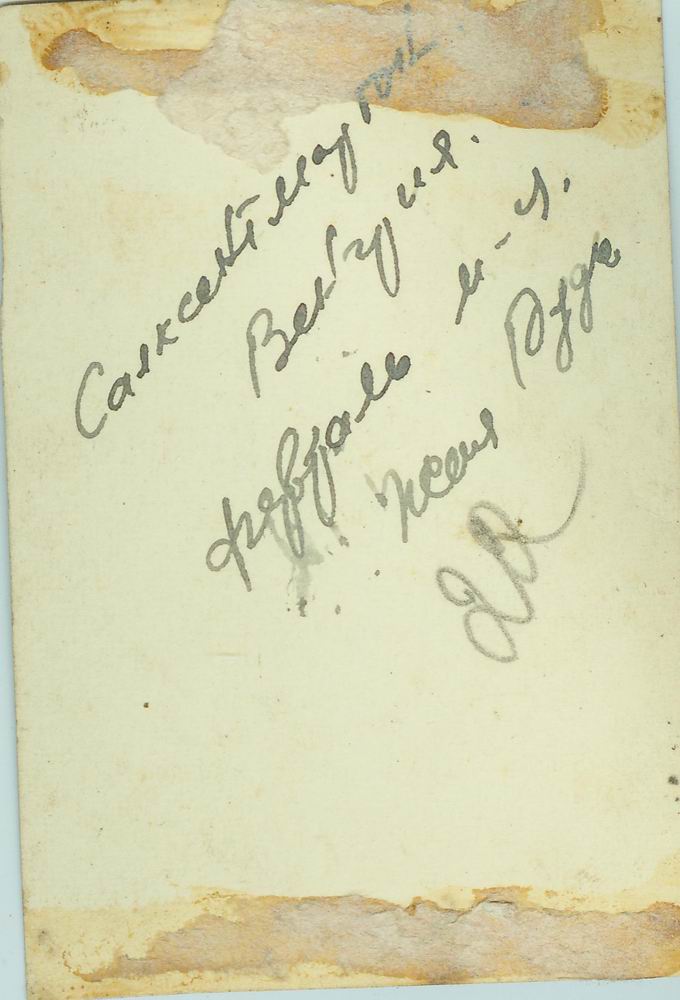 Салксентмартон
Венгрия.
февраль м-ц.
Женя